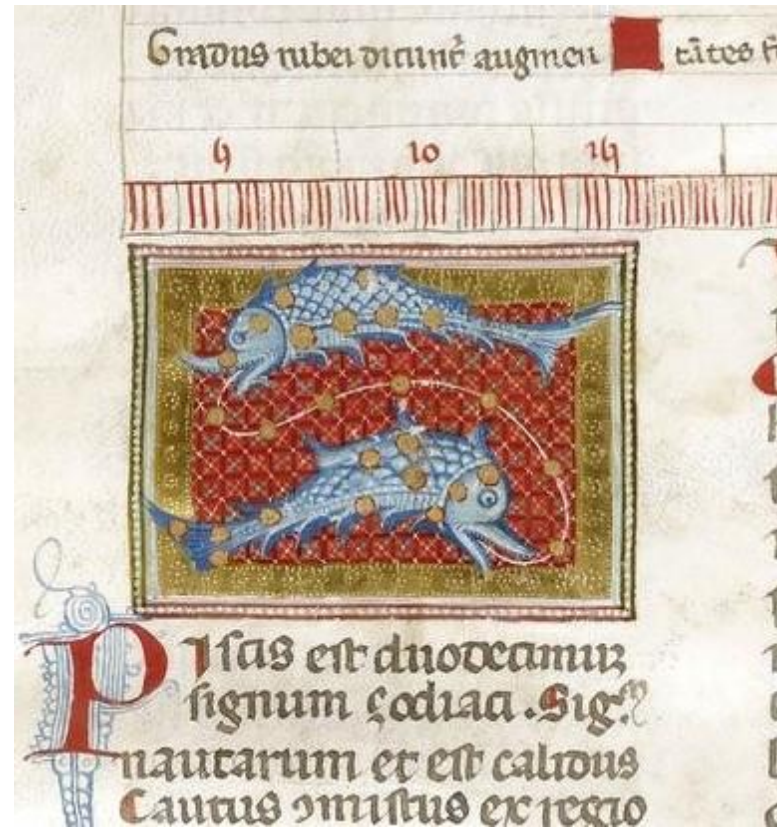 Gradus rubei dicunt̃ augmen tãtes
9 10 14
Piscis est duodecimum
signum çodiaci . Sig
nautarum et est calidus
Cautus ɔmistus ex regio